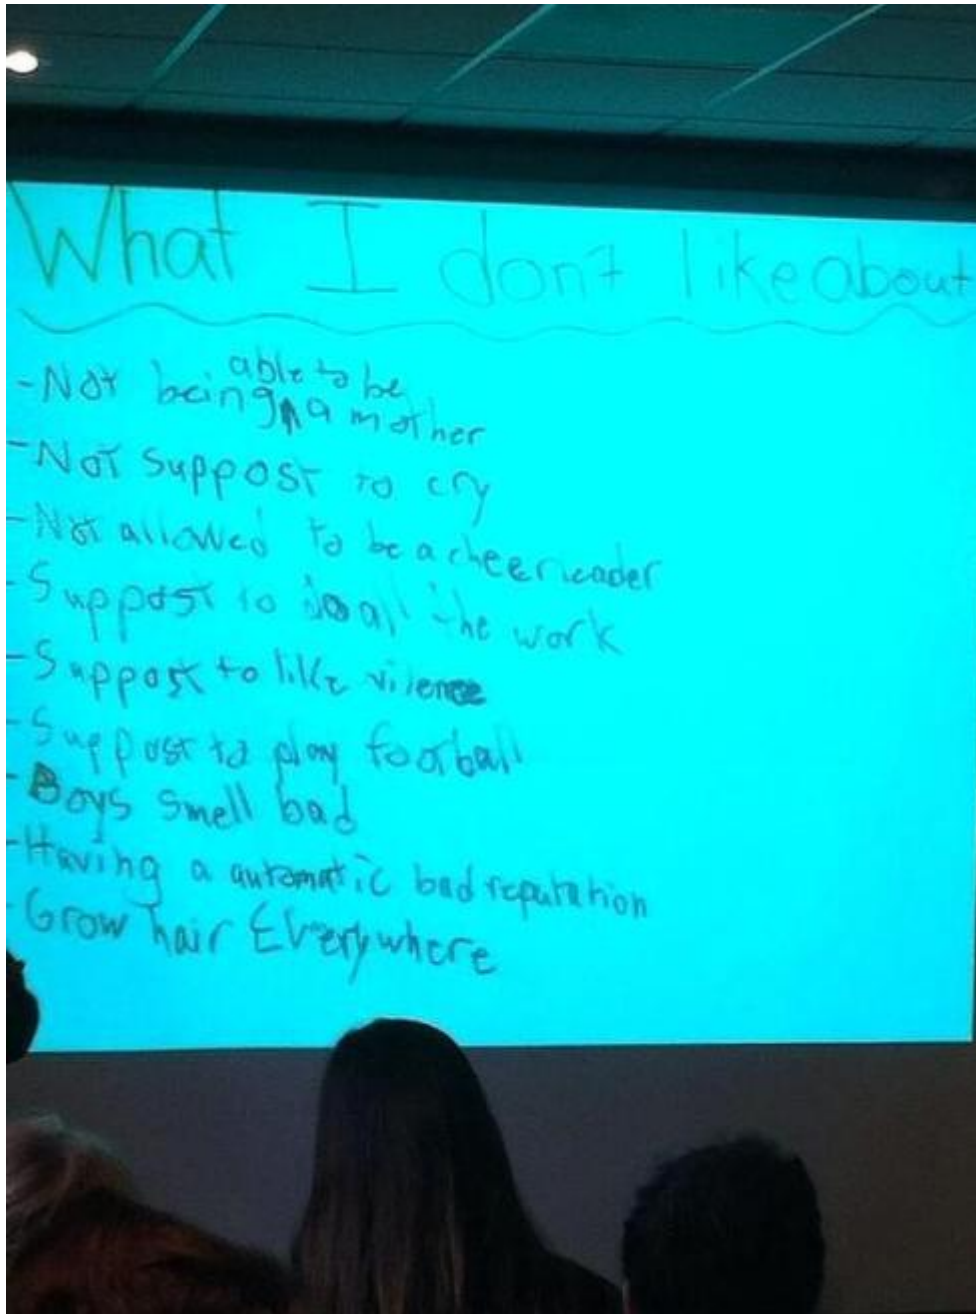 What I don't like about
- Not being able to be a mother
- Not suppost to cry
- Not allowed to be a cheerleader
- Suppost to do all the work
- Suppost to like vilence
- Suppost to play football
- Boys smell bad
- Having a automatic bad reputation
- Grow hair Everywhere